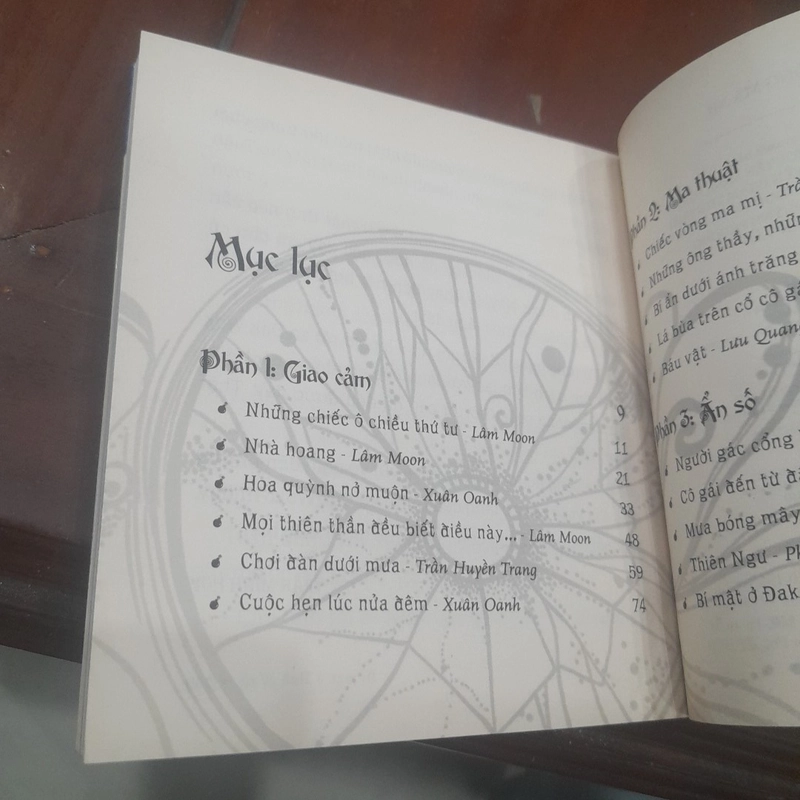 Mục lục
Phần 1: Giao cảm
Những chiếc ô chiều thứ tư - Lâm Moon 9
Nhà hoang - Lâm Moon 11
Hoa quỳnh nở muộn - Xuân Oanh 21
Mọi thiên thần đều biết điều này... - Lâm Moon 33
48
Chơi đàn dưới mưa - Trần Huyền Trang 59
Cuộc hẹn lúc nửa đêm - Xuân Oanh 74
Phần 2: Ma thuật
Chiếc vòng ma mị -
Những ông thầy,
Bí ẩn dưới ánh trăng
Lá bùa trên cổ cô
Báu vật - Lưu
Phần 3: Ẩn số
Người gác cổng
Cô gái đến từ
Mưa bóng mây
Thiên Ngư -
Bí mật ở